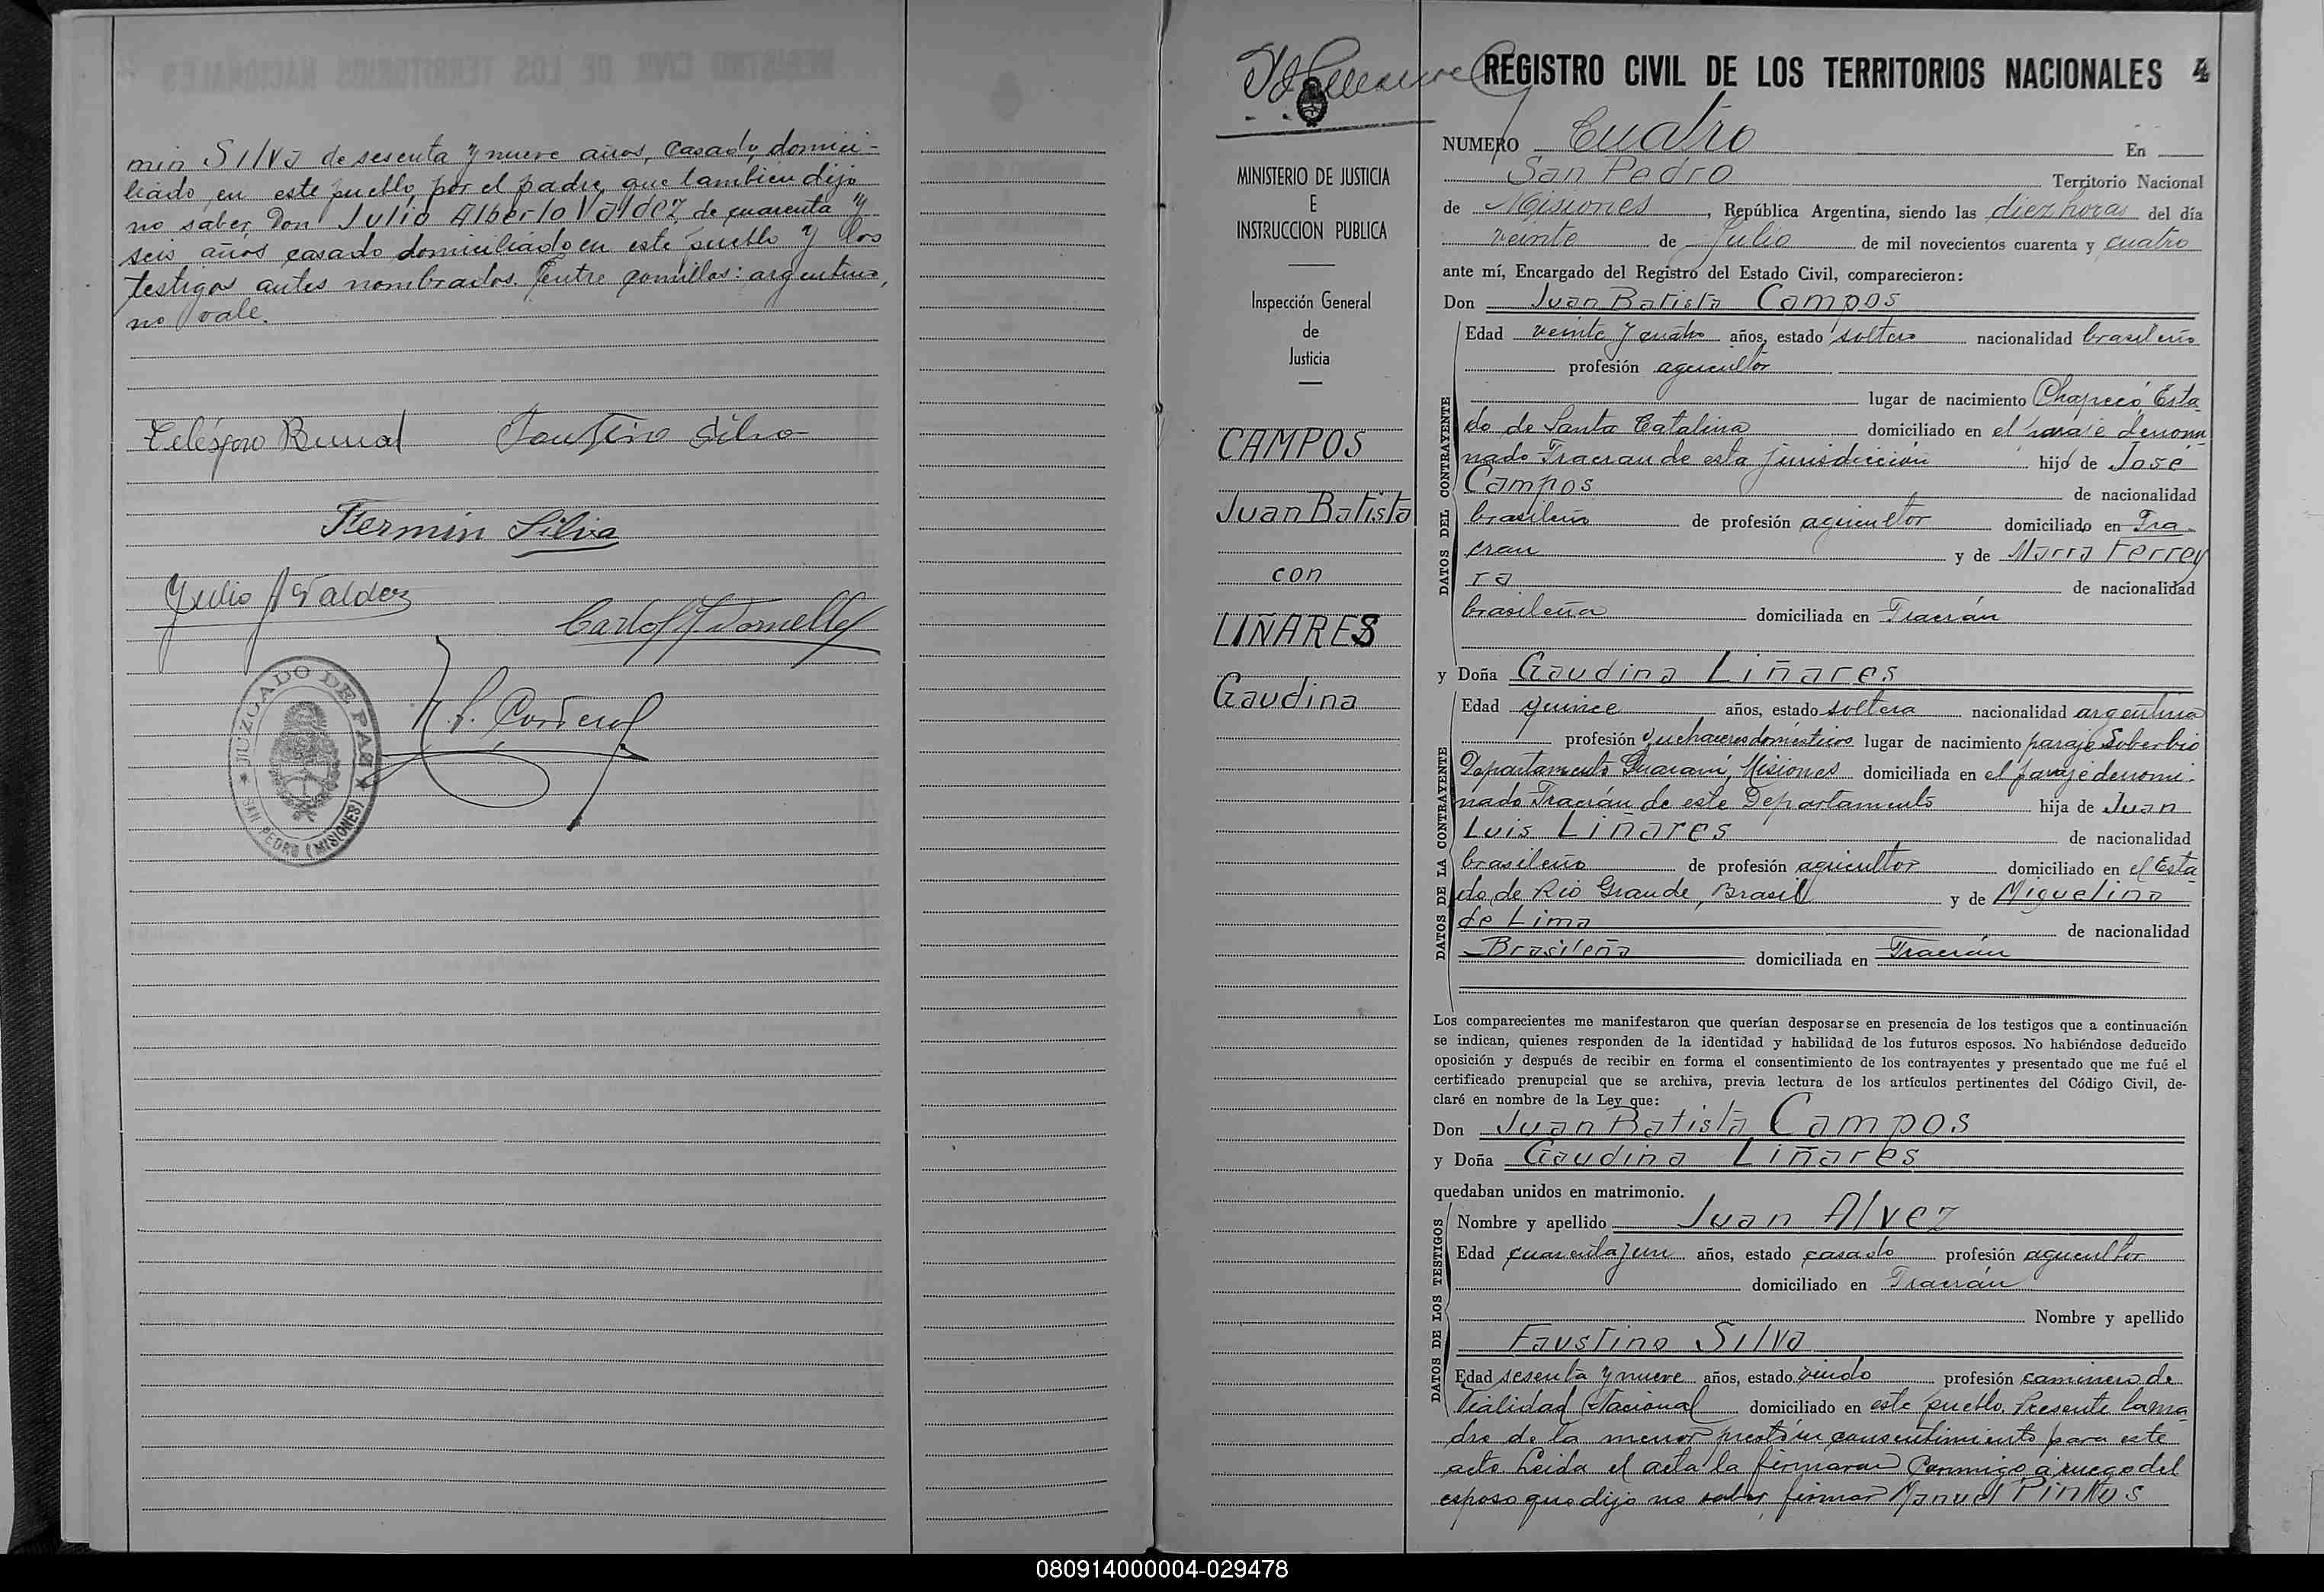 min Silva de sesenta y nueve años, casado, domici-
liado en este pueblo, por el padre, que tambien dijo
no saber, Don Julio Alberto Valdez de cuarenta y
seis años casado domiciliado en este pueblo y los
testigos antes nombrados. Entre comillas: argentino,
no vale.
Faustino Silva
Fermin Silva
Julio A Valdez
JUZGADO DE PAZ
SAN PEDRO (MISIONES)
REGISTRO CIVIL DE LOS TERRITORIOS NACIONALES 4
NUMERO Cuatro En
San Pedro Territorio Nacional
de Misiones, República Argentina, siendo las diez horas del día
veinte de Julio de mil novecientos cuarenta y cuatro
ante mí, Encargado del Registro del Estado Civil, comparecieron:
Don Juan Batista Campos
Edad veinte y cuatro años, estado soltero nacionalidad brasileño
profesión agricultor
lugar de nacimiento Chapecó, Esta
do de Santa Catalina domiciliado en el paraje denomi
nado Tracran de esta jurisdicción hijo de José
Campos de nacionalidad
brasileño de profesión agricultor domiciliado en Tra
cran y de María Ferrey
ra de nacionalidad
brasileña domiciliada en Tracrán
y Doña Gaudina Liñares
Edad quince años, estado soltera nacionalidad argentina
profesión quehaceres domésticos lugar de nacimiento paraje Soberbio
Departamento Guaraní, Misiones domiciliada en el paraje denomi-
nado Tracrán de este Departamento hija de Juan
Luis Liñares de nacionalidad
brasileño de profesión agricultor domiciliado en el Esta
do de Rio Grande, Brasil y de Miguelina
de Lima de nacionalidad
Brasileña domiciliada en Tracrán
Los comparecientes me manifestaron que querían desposarse en presencia de los testigos que a continuación
se indican, quienes responden de la identidad y habilidad de los futuros esposos. No habiéndose deducido
oposición y después de recibir en forma el consentimiento de los contrayentes y presentado que me fué el
certificado prenupcial que se archiva, previa lectura de los artículos pertinentes del Código Civil, de-
claré en nombre de la Ley que:
Don Juan Batista Campos
y Doña Gaudina Liñares
quedaban unidos en matrimonio.
Nombre y apellido Juan Alvez
Edad cuarenta y un años, estado casado profesión agricultor
domiciliado en Tracrán
Nombre y apellido
Faustino Silva
Edad sesenta y nueve años, estado viudo profesión caminero de
Vialidad Nacional domiciliado en este pueblo. Presente la ma
dre de la menor prestó su consentimiento para este
acto. Leida el acta la firmaron conmigo, a ruego del
esposo que dijo no saber firmar Manuel Pintos
MINISTERIO DE JUSTICIA
E
INSTRUCCION PUBLICA
Inspección General
de
Justicia
CAMPOS
Juan Batista
con
LIÑARES
Gaudina
DATOS DEL CONTRAYENTE
DATOS DE LA CONTRAYENTE
DATOS DE LOS TESTIGOS
080914000004-029478